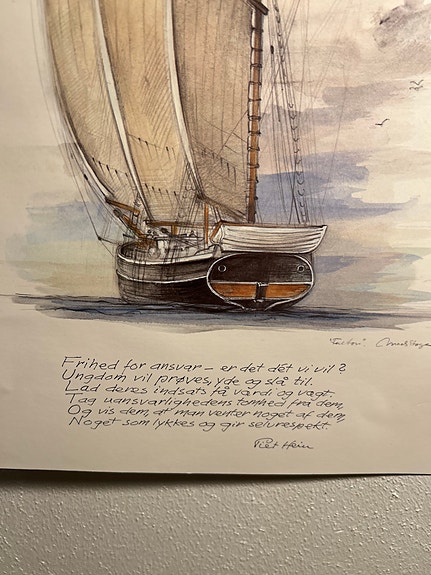 Frihed for ansvar – er det dét vi vil?
Ungdom vil prøves, yde og slå til.
Lad deres indsats få værdi og vægt.
Tag uansvarlighedens tomhed fra dem,
Og vis dem, at man venter noget af dem,
Noget som lykkes og gir selvrespekt
Piet Hein